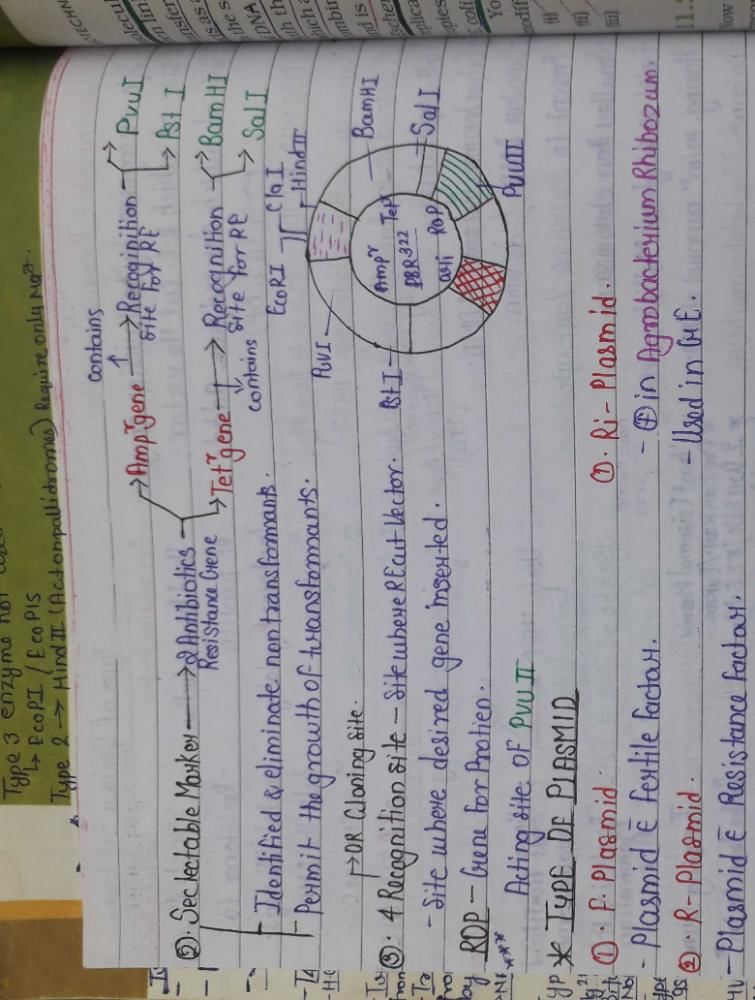 Type 3 enzyme not
↳ EcoPI / EcoP15
Type 2 → Hind II (Act on pallidromes) Require only Mg²⁺.
contains
②. Seclectable Marker → 2 Antibiotics Resistance Gene
→ Ampʳ gene → Recoginition site for RE → PvuI
→ Pst I
→ Tetʳ gene → Recognition site for RE → BamHI
→ Sal I
contains
- Identified & eliminate non transformants.
- Permit the growth of transformants.
EcoRI
ClaI
Hind II
BamHI
Sal I
PvuII
PvuI
Pst I
Ampʳ
Tetʳ
PBR322
ori
ROP
→ OR Cloning site.
③. 4 Recognition site - Site where RE cut Vector.
- Site where desired gene inserted.
ROP - Gene for Protien.
Acting site of PVU II
* TYPE OF PLASMID
①. F. Plasmid.
- Plasmid c̄ Fertile factor.
②. R-Plasmid.
- Plasmid c̄ Resistance Factor.
①. Ri-Plasmid.
- ⊕ in Agrobacterium Rhibozum.
- Used in GE.